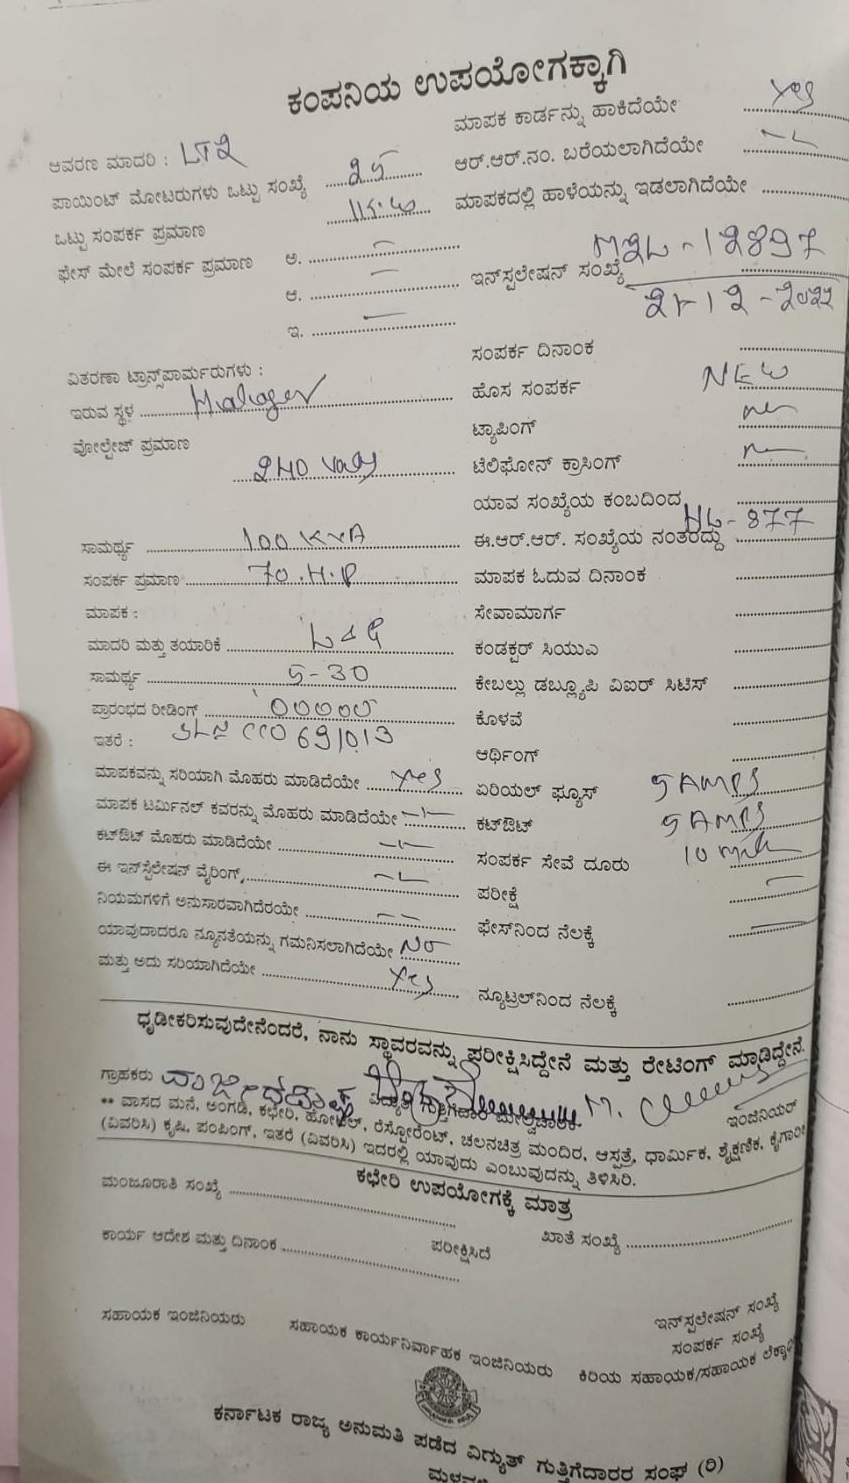 ಕಂಪನಿಯ ಉಪಯೋಗಕ್ಕಾಗಿ
ಆವರಣ ಮಾದರಿ : LT2
ಪಾಯಿಂಟ್ ಮೋಟರುಗಳು ಒಟ್ಟು ಸಂಖ್ಯೆ 25
ಒಟ್ಟು ಸಂಪರ್ಕ ಪ್ರಮಾಣ
ಫೇಸ್ ಮೇಲೆ ಸಂಪರ್ಕ ಪ್ರಮಾಣ ಅ. –
ಆ. –
ಇ. –
ವಿತರಣಾ ಟ್ರಾನ್ಸ್‌ಪಾರ್ಮರುಗಳು :
ಇರುವ ಸ್ಥಳ
ವೋಲ್ಟೇಜ್ ಪ್ರಮಾಣ
240 Volts
ಸಾಮರ್ಥ್ಯ 100 KVA
ಸಂಪರ್ಕ ಪ್ರಮಾಣ 70.H.P
ಮಾಪಕ :
ಮಾದರಿ ಮತ್ತು ತಯಾರಿಕೆ L&G
ಸಾಮರ್ಥ್ಯ 5-30
ಪ್ರಾರಂಭದ ರೀಡಿಂಗ್ 00000
ಇತರೆ :
ಮಾಪಕವನ್ನು ಸರಿಯಾಗಿ ಮೊಹರು ಮಾಡಿದೆಯೇ Yes
ಮಾಪಕ ಟರ್ಮಿನಲ್ ಕವರನ್ನು ಮೊಹರು ಮಾಡಿದೆಯೇ
ಕಟ್‌ಔಟ್ ಮೊಹರು ಮಾಡಿದೆಯೇ
ಈ ಇನ್‌ಸ್ಟಲೇಷನ್ ವೈರಿಂಗ್,
ನಿಯಮಗಳಿಗೆ ಅನುಸಾರವಾಗಿದೆರಯೇ
ಯಾವುದಾದರೂ ನ್ಯೂನತೆಯನ್ನು ಗಮನಿಸಲಾಗಿದೆಯೇ No
ಮತ್ತು ಅದು ಸರಿಯಾಗಿದೆಯೇ Yes
ಮಾಪಕ ಕಾರ್ಡನ್ನು ಹಾಕಿದೆಯೇ Yes
ಆರ್.ಆರ್.ನಂ. ಬರೆಯಲಾಗಿದೆಯೇ
ಮಾಪಕದಲ್ಲಿ ಹಾಳೆಯನ್ನು ಇಡಲಾಗಿದೆಯೇ
ಇನ್‌ಸ್ಪಲೇಷನ್ ಸಂಖ್ಯೆ M2L-12897
ಸಂಪರ್ಕ ದಿನಾಂಕ
ಹೊಸ ಸಂಪರ್ಕ NEW
ಟ್ಯಾಪಿಂಗ್
ಟೆಲಿಫೋನ್ ಕ್ರಾಸಿಂಗ್
ಯಾವ ಸಂಖ್ಯೆಯ ಕಂಬದಿಂದ
ಈ.ಆರ್.ಆರ್. ಸಂಖ್ಯೆಯ ನಂತರದ್ದು HL-877
ಮಾಪಕ ಓದುವ ದಿನಾಂಕ
ಸೇವಾಮಾರ್ಗ
ಕಂಡಕ್ಟರ್ ಸಿಯುಎ
ಕೇಬಲ್ಲು ಡಬ್ಲ್ಯೂಪಿ ವಿಐರ್ ಸಿಟಿಸ್
ಕೊಳವೆ
ಆರ್ಥಿಂಗ್
ಏರಿಯಲ್ ಫ್ಯೂಸ್ 5 AMPS
ಕಟ್‌ಔಟ್ 5 AMPS
ಸಂಪರ್ಕ ಸೇವೆ ದೂರು 10 mtr
ಪರೀಕ್ಷೆ –
ಫೇಸ್‌ನಿಂದ ನೆಲಕ್ಕೆ –
ನ್ಯೂಟ್ರಲ್‌ನಿಂದ ನೆಲಕ್ಕೆ
ಧೃಡೀಕರಿಸುವುದೇನೆಂದರೆ, ನಾನು ಸ್ಥಾವರವನ್ನು ಪರೀಕ್ಷಿಸಿದ್ದೇನೆ ಮತ್ತು ರೇಟಿಂಗ್ ಮಾಡಿದ್ದೇನೆ.
ಗ್ರಾಹಕರು ವಿದ್ಯುತ್ ಗುತ್ತಿಗೆದಾರ ಮೇಲ್ವಿಚಾರಕ ಇಂಜಿನಿಯರ್
** ವಾಸದ ಮನೆ, ಅಂಗಡಿ, ಕಛೇರಿ, ಹೋಟೆಲ್, ರೆಸ್ಟೋರೆಂಟ್, ಚಲನಚಿತ್ರ ಮಂದಿರ, ಆಸ್ಪತ್ರೆ, ಧಾರ್ಮಿಕ, ಶೈಕ್ಷಣಿಕ, ಕೈಗಾರಿ
(ವಿವರಿಸಿ) ಕೃಷಿ, ಪಂಪಿಂಗ್, ಇತರೆ (ವಿವರಿಸಿ) ಇದರಲ್ಲಿ ಯಾವುದು ಎಂಬುವುದನ್ನು ತಿಳಿಸಿರಿ.
ಕಛೇರಿ ಉಪಯೋಗಕ್ಕೆ ಮಾತ್ರ
ಮಂಜೂರಾತಿ ಸಂಖ್ಯೆ
ಖಾತೆ ಸಂಖ್ಯೆ
ಕಾರ್ಯ ಆದೇಶ ಮತ್ತು ದಿನಾಂಕ
ಪರೀಕ್ಷಿಸಿದೆ
ಇನ್‌ಸ್ಪಲೇಷನ್ ಸಂಖ್ಯೆ
ಸಂಪರ್ಕ ಸಂಖ್ಯೆ
ಸಹಾಯಕ ಇಂಜಿನಿಯರು ಸಹಾಯಕ ಕಾರ್ಯನಿರ್ವಾಹಕ ಇಂಜಿನಿಯರು ಕಿರಿಯ ಸಹಾಯಕ/ಸಹಾಯಕ
ಕರ್ನಾಟಕ ರಾಜ್ಯ ಅನುಮತಿ ಪಡೆದ ವಿದ್ಯುತ್ ಗುತ್ತಿಗೆದಾರರ ಸಂಘ (ರಿ)